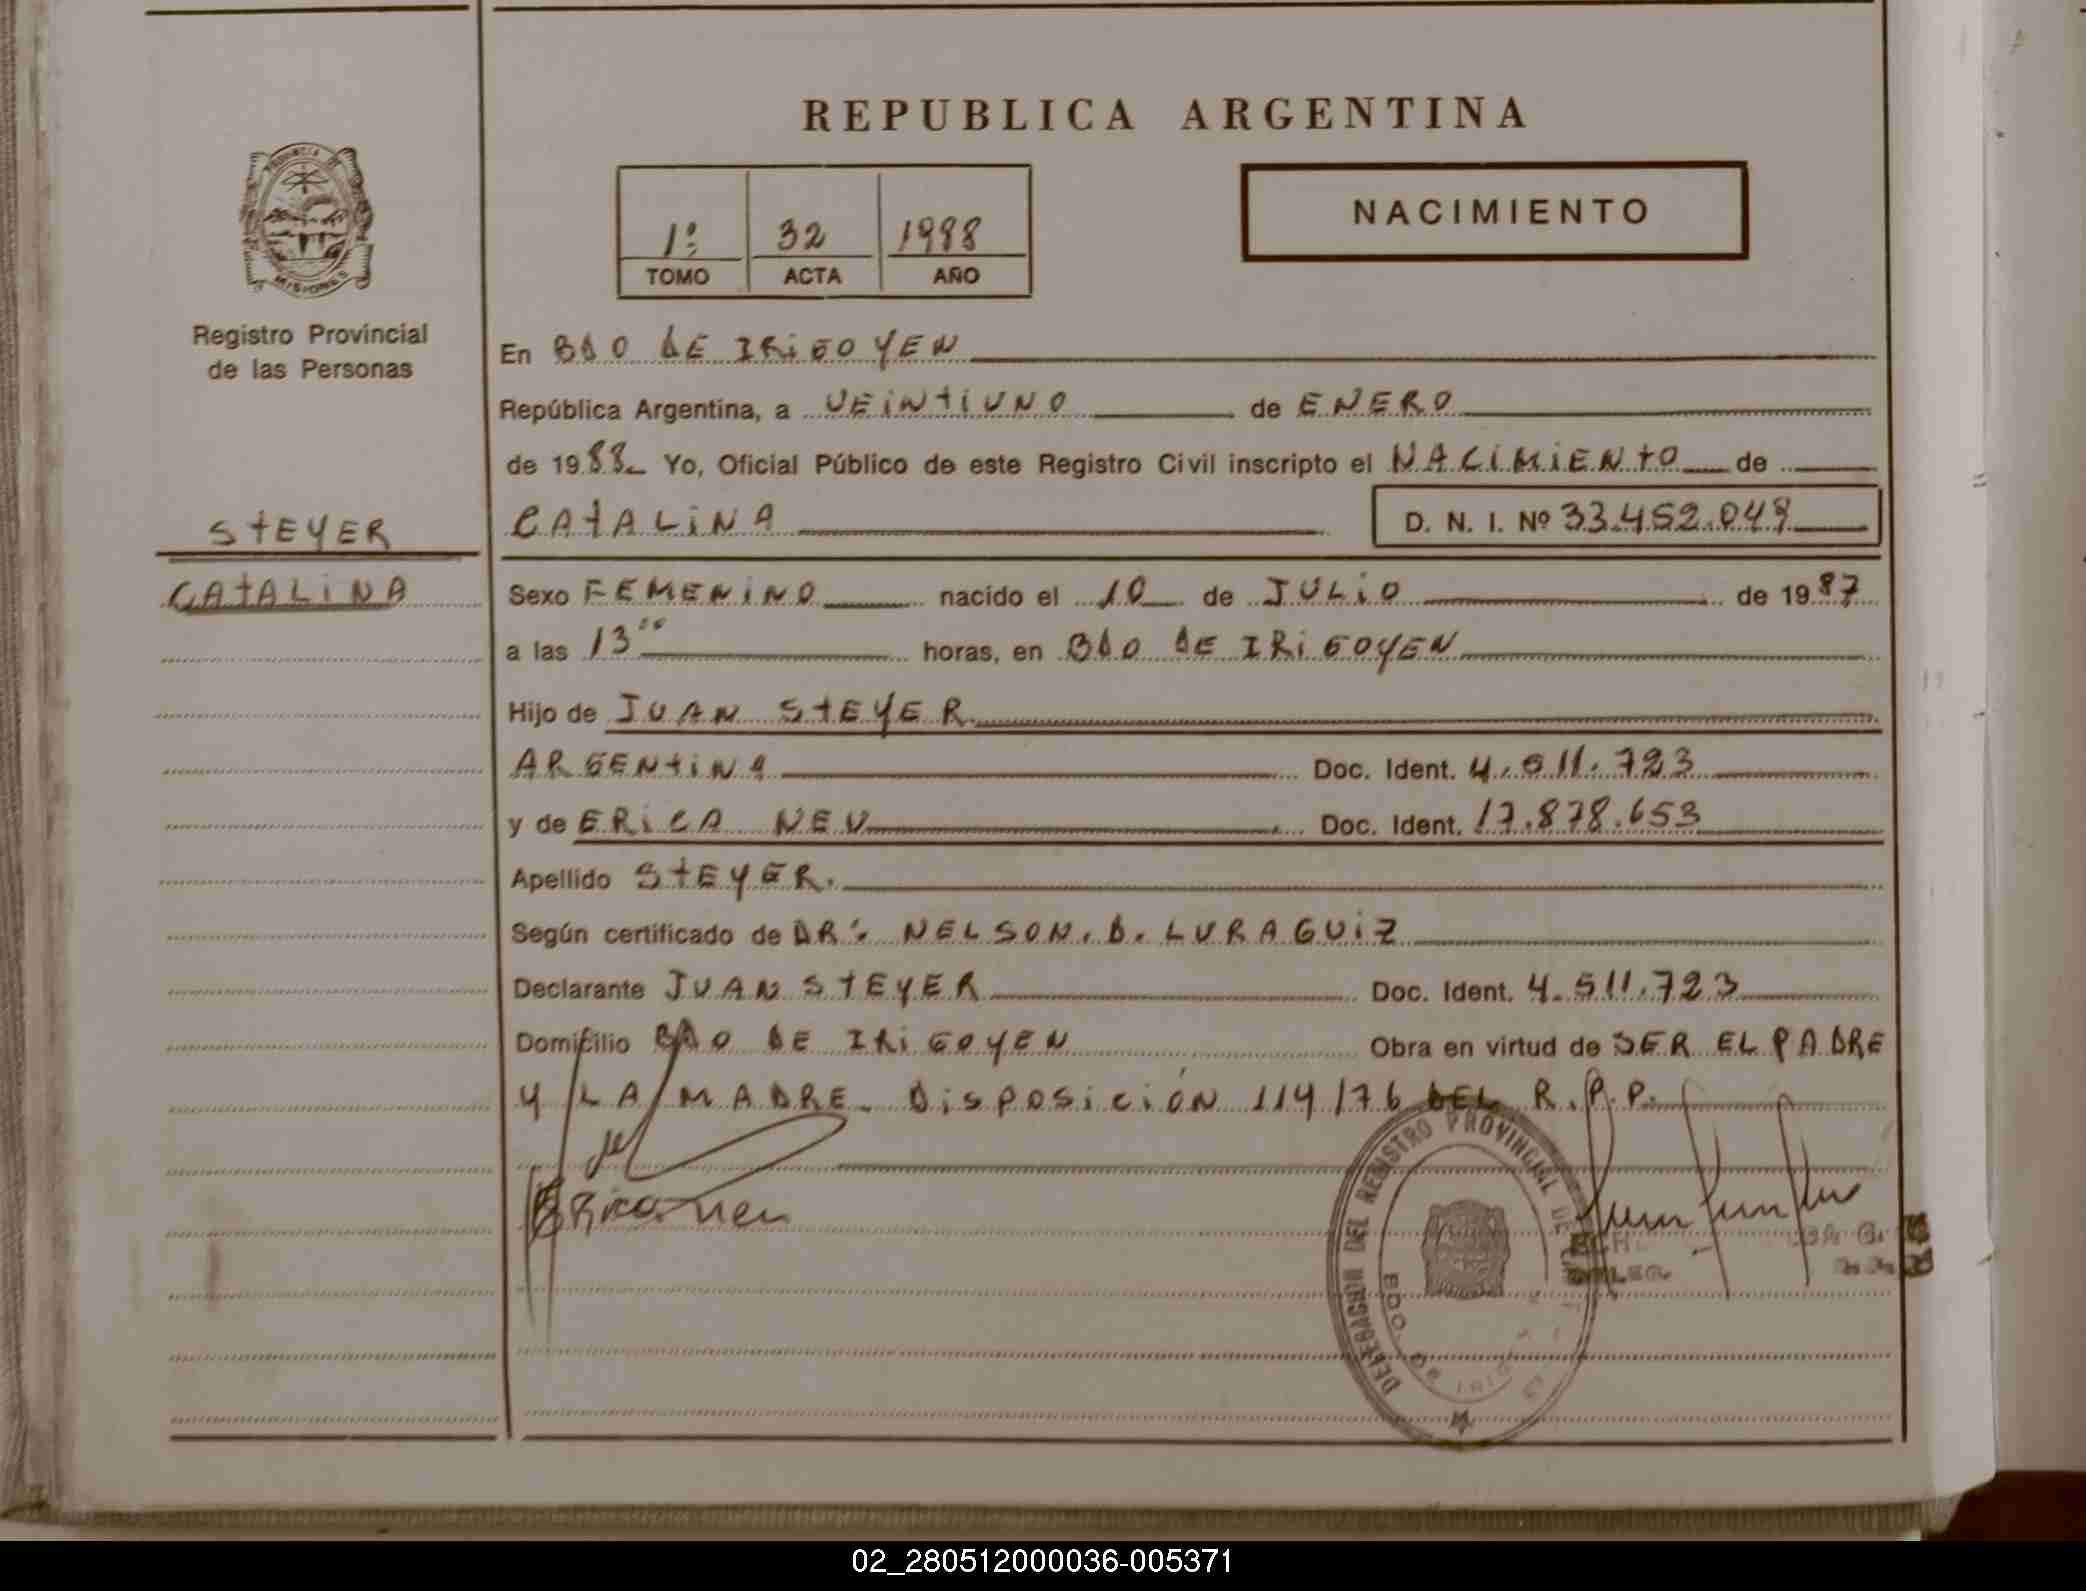 REPUBLICA ARGENTINA
NACIMIENTO
1º 32 1988
TOMO ACTA AÑO
PROVINCIA DE MISIONES
Registro Provincial
de las Personas
En BDO DE IRIGOYEN
República Argentina, a VEINTIUNO de ENERO
de 1988 Yo, Oficial Público de este Registro Civil inscripto el NACIMIENTO de
STEYER
CATALINA
CATALINA D. N. I. Nº 33.452.048
Sexo FEMENINO nacido el 10 de JULIO de 1987
a las 13°° horas, en BDO DE IRIGOYEN
Hijo de JUAN STEYER
ARGENTINA Doc. Ident. 4.511.723
y de ERICA NEU Doc. Ident. 17.878.653
Apellido STEYER.
Según certificado de DR: NELSON. D. LURAGUIZ
Declarante JUAN STEYER Doc. Ident. 4.511.723
Domicilio BDO DE IRIGOYEN Obra en virtud de SER EL PADRE
Y LA MADRE. DISPOSICIÓN 114/76 DEL R.P.P.
Erica Neu
DELEGACION DEL REGISTRO PROVINCIAL DE
BDO. DE IRIG
02_280512000036-005371